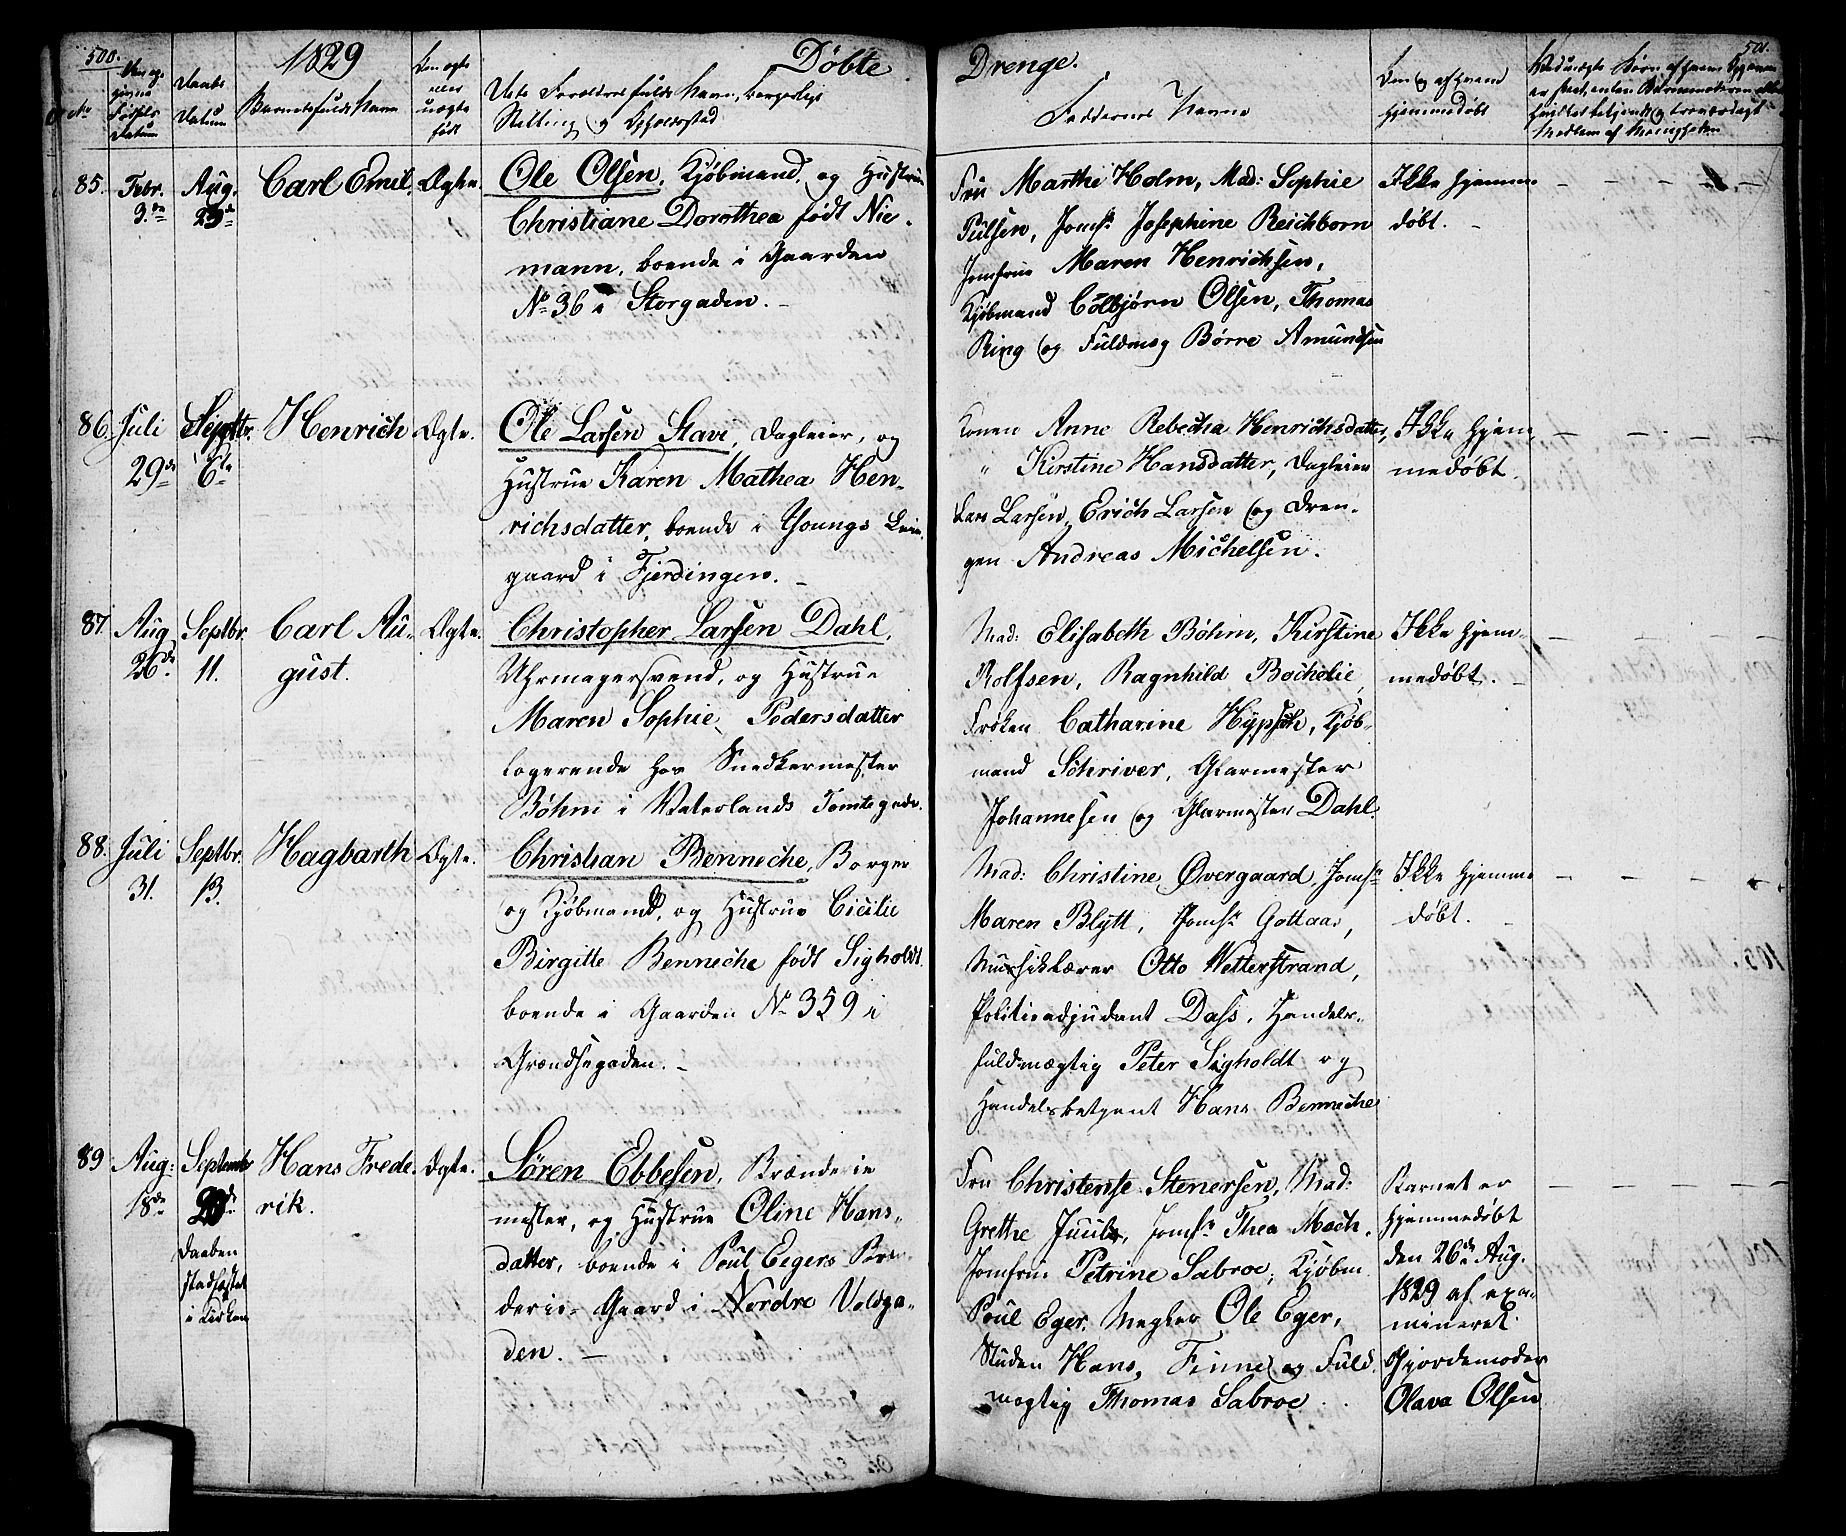 500.
1829
Døbte
Drenge.
501.
No
Den op-
givne
Fødsels
Datum
Daabs
Datum
Barnets fulde Navn
Om ægte
eller
uægte
født
Forældres fulde Navn, borgerlige
Stilling og Opholdssted
Faddernes Navne
Om og af hvem
hjemmedøbt
85.
Febr.
9de
Aug.
23de
Carl Emil.
Ægte.
Ole Olsen, Kjøbmand, og Hustrue
Christiane Dorothea født Nie-
mann, boende i Gaarden
No 36 i Storgaden. –
Fru Marthe Holm, Mad: Sophie
Pülsen, Jomfr Josephine Reichborn
Jomfrue Maren Henrichsen,
Kjøbmand Colbjørn Olsen, Thomas
Ring og Fuldmæg Børre Amundsen
Ikke hjemme
døbt. –
86.
Juli
29de
Septbr.
6te
Henrich
Ægte.
Ole Larsen Stave, Dagleier, og
Hustrue Karen Mathea Hen-
richsdatter, boende i Youngs Leie
gaard i Fjerdingen. –
Konen Anne Rebecha Henrichsdatter,
" Kirstine Hansdatter, Dagleier
Lars Larsen, Erich Larsen og Dren-
gen Andreas Michelsen.
Ikke hjem-
medøbt.
87.
Aug
26de
Septbr.
11.
Carl Au-
gust.
Ægte.
Christopher Larsen Dahl,
Uhrmagersvend, og Hustrue
Maren Sophie Pedersdatter
logerende hos Snedkermester
Böhm i Vaterlands Tomtegade.
Mad: Elisabeth Böhm, Kirstine
Rolfsen, Ragnhild Bochelie
Frøken Catharine Kjøb-
mand Schriver, Glarmester
Johannesen og Glarmester Dahl.
Ikke hjem-
medøbt. –
88.
Juli
31.
Septbr.
13.
Hagbarth
Ægte.
Christian Benneche, Borger
og Kjøbmand, og Hustrue Cicilie
Birgitte Benneche født Sigholdt
boende i Gaarden No 359 i
Grændsegaden. –
Mad: Christine Øvergaard, Jomfr
Maren Blytt, Jomfr Gottaas,
Musiklærer Otto Wetterstrand,
Politieadjudant Dass, Handels-
fuldmægtig Peter Sigholdt og
Handelsbetjent Hans Benneche
Ikke hjemme
døbt.
89
Aug:
18de
Septembr
20de
Daaben
stadfæstet
i Kirken
Hans Frede-
rik.
Ægte.
Sören Ebbesen, Brænderie
mester, og Hustrue Oline Hans-
datter, boende i Poul Egers Bræn-
derie-Gaard i Nordre Voldga-
den. –
Fru Christense Stenersen, Mad:
Grethe Juul, Jomfr Thea Mach,
Jomfrue Petrine Sabroe, Kjøbm
Poul Eger, Megler Ole Eger,
Studen Hans Finne og Fuld
mægtig Thomas Sabroe
Barnet er
hjemmedøbt
den 26de Aug.
1829 af exa-
mineret
Gjordemoder
Olava Olsen